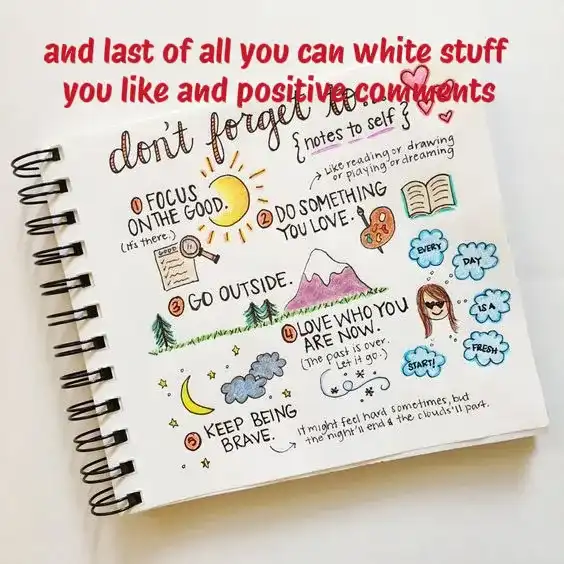 and last of all you can white stuff
you like and positive comments
don't forget to...
{notes to self}
Like reading or drawing
or playing or dreaming
1 FOCUS
ON THE GOOD.
(It's there.)
GOOD
2 DO SOMETHING
YOU LOVE.
3 GO OUTSIDE.
EVERY
DAY
IS A
FRESH
START!
4 LOVE WHO YOU
ARE NOW.
(The past is over.
Let it go.)
5 KEEP BEING
BRAVE.
it might feel hard sometimes, but
the night'll end & the clouds'll part.